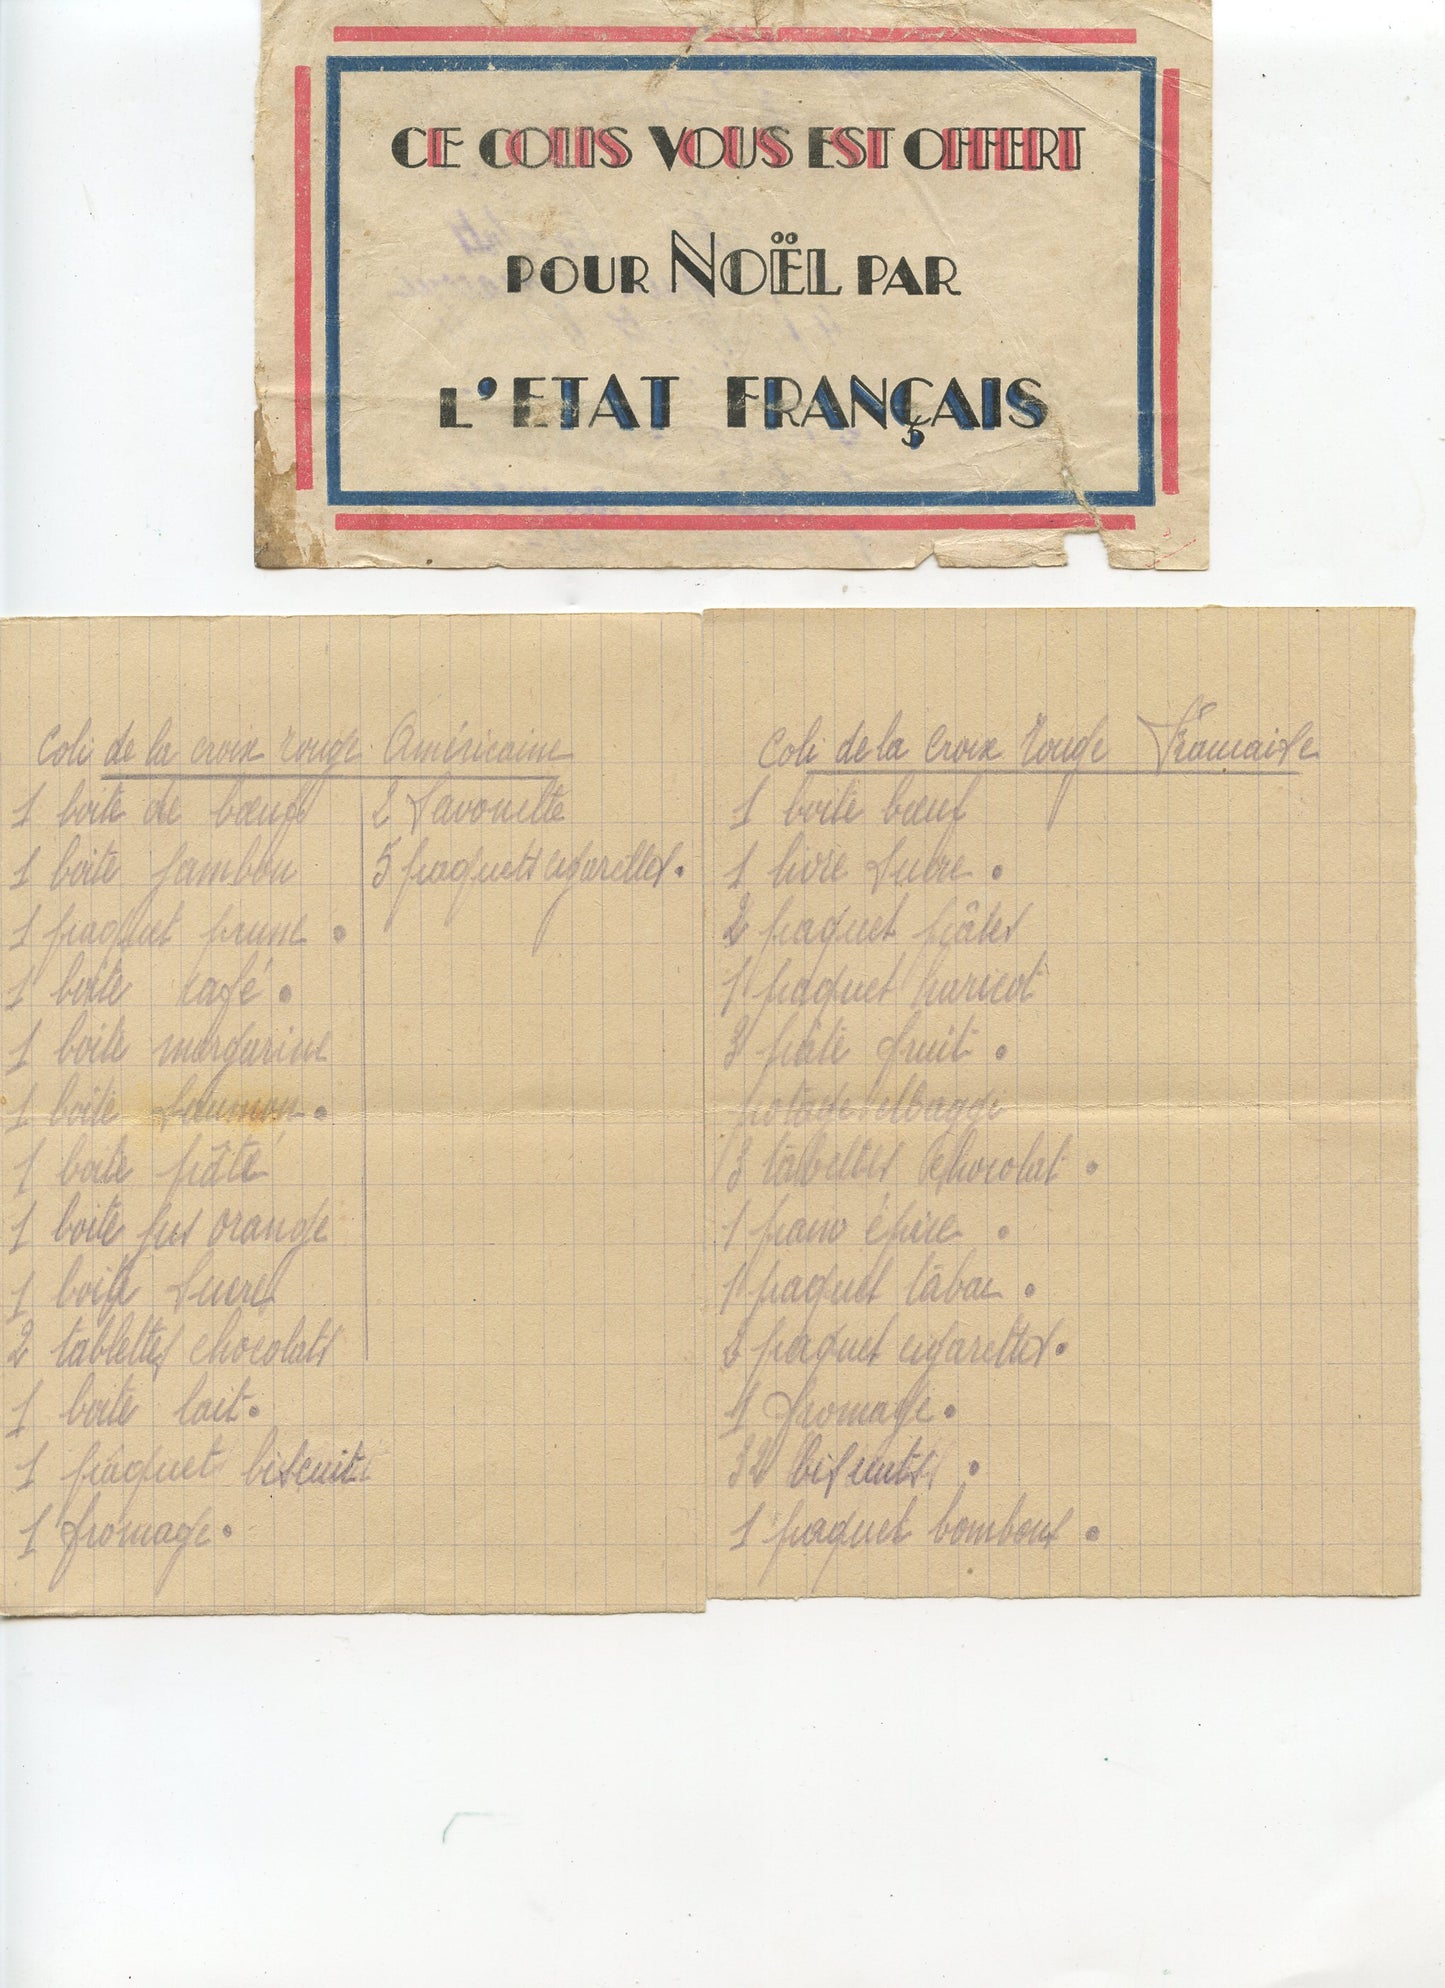 CE COLIS VOUS EST OFFERT
POUR NOËL PAR
L'ETAT FRANÇAIS
Coli de la croix rouge Américaine
1 boite de bœuf
1 boite jambon
1 paquet prune.
1 boite café.
1 boite margarine
1 boite Saumon.
1 boite pâté
1 boite jus orange
1 boite Sucre
2 tablettes chocolats
1 boite lait.
1 paquet biscuits
1 fromage.
2 Savonette
5 paquets cigarettes.
Coli de la Croix Rouge Française
1 boite bœuf
1 livre Sucre.
2 paquet pâtes
1 paquet haricot
3 pâte fruit.
potage
3 tâbettes chocolat.
1 pain épice.
1 paquet tâbac.
3 paquet cigarettes.
1 fromage.
32 biscuits.
1 paquet bombons.